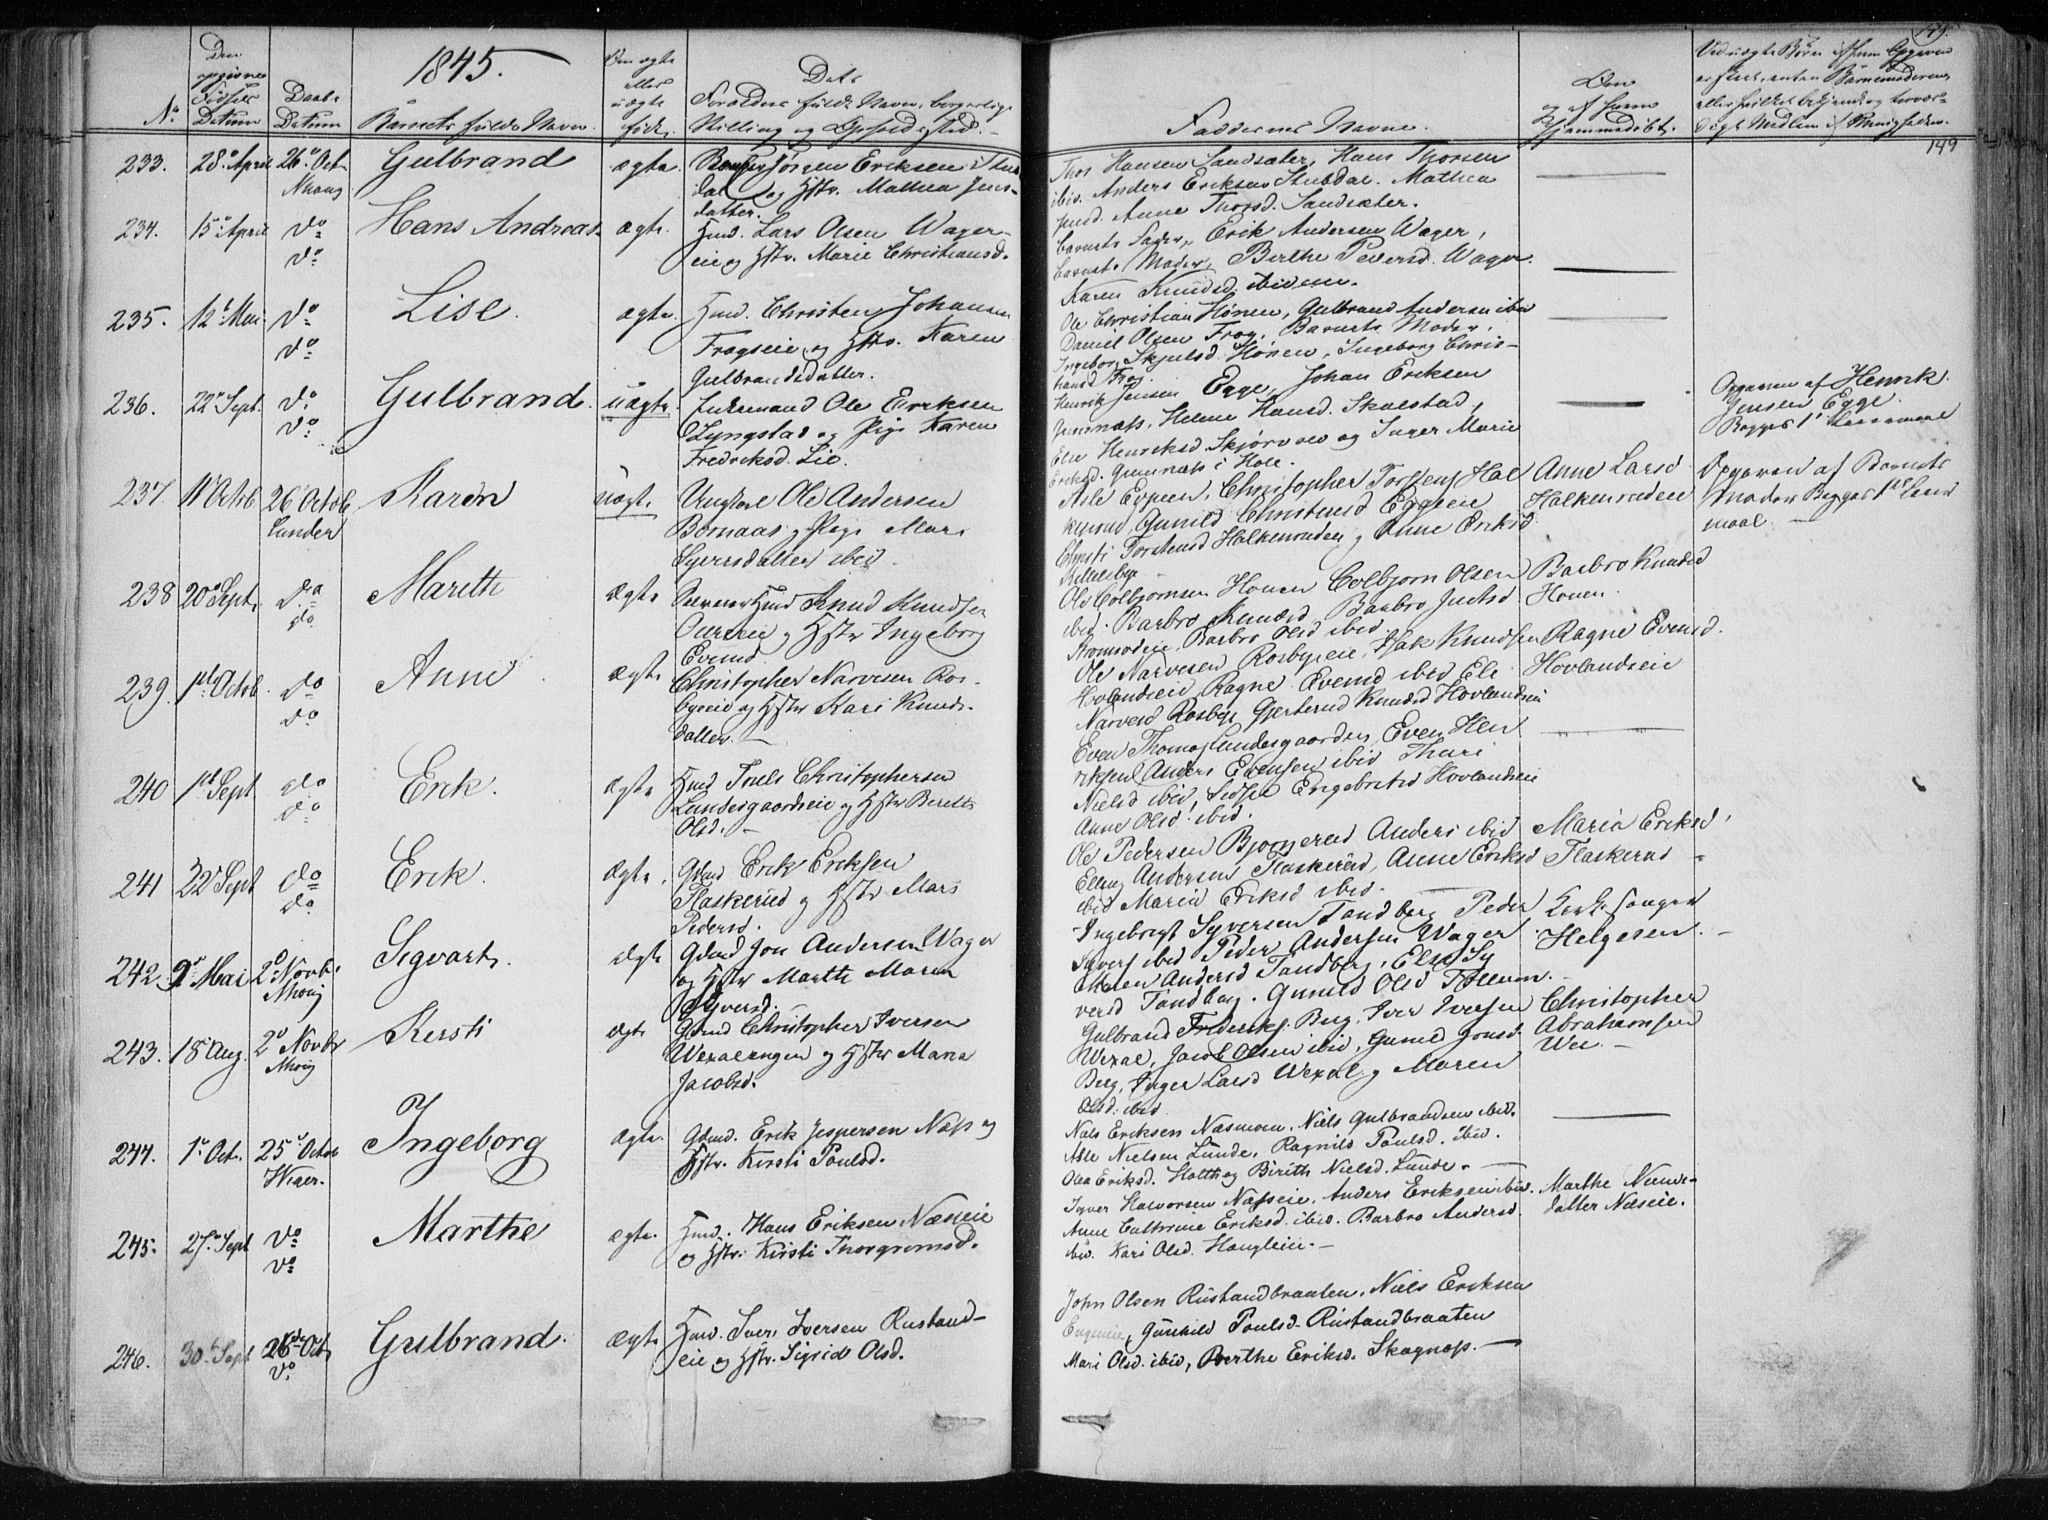 1845.
No
Den opgivne Fødsels Datum
Daabs Datum
Barnets fulde Navn.
Om ægte eller uægte født.
Dets Forældres fulde Navn, borgerlige Stilling og Opholdssted.
Faddernes Navne.
Om og af hvem hjemmedøbt.
149.
149
233. 28o April 26o Oct. Gulbrand ægte Jørgen Eriksen
og Hstr. Mathea Jens-
datter.
Thor Hansen Sandsæter, Hans Thorsen
ibid. Anders Eriksen Stubdal. Mathea
Anne Thorsd. Sandsæter.
234. 15o April do do Hans Andreas ægte. Hmd. Lars Olsen Wager-
eie og Hstr. Marie Christiansd.
Barnets Fader, Erik Andersen Wager,
Barnets Moder, Berthe Pedersd. Wager.
Karen Knudsd. ibidem.
235. 12te Mai. do do Lise. ægte. Hmd. Christen Johansen
Frogseie og Hstr. Karen
Gulbrandsdatter.
Ole Christian Hønen, Gulbrand Andersen ibid
Daniel Olsen Frog, Barnets Moder,
Ingeborg Skjulsd. Hønen, Ingeborg Chris-
tiansd Frog.
236. 22o Sept. do. do. Gulbrand. uægte. Ole Eriksen
Lyngstad og Pige Karen
Fredriksd. Lie.
Henrik Jensen Egge, Johan Eriksen
Gunnnæss, Helene Hansd. Skalstad,
Else Henriksd. Skjørvold og Inger Marie
Eriksd. Gunnnæss i Hole.
Opgaven af Henrik
Jensen Egge.
Begges 1ste Leiermaal
237. 11te Octob 26 Octob Lunder Karen uægte. Ungkarl Ole Andersen
Børnaas og Pige Mari
Syversdatter ibid.
Asle Eggeen, Christopher Torstens Hal
kenrud, Gunild Christensd Eggeeie
Christi Torstensd Halkenrudeie og Anne Eriksd
Anne Larsd
Halkenrudeie
Opgaven af Barnets
Moder Begges 1ste Leier
maal. —
238 20o Sept. do do. Mareth ægte Hmd Knud Knudsen
og Hstr Ingeborg
Evensd.
Ole Colbjørnsen Hoven Colbjørn Olsen
ibid. Barbro Knudsd Barbro
Barbro Olsd ibid.
Barbro Knudsd
Hoven.
239. 1ste Octob. do do Anne ægte Christopher Narvesen Ros-
byeeie og Hstr Kari Knuds-
datter. —
Ole Narvesen Rosbyeeie, Knudsen
Hovlandseie Ragne Evensd ibid Eli
Narvesd Rosbye Gjertrud Knudsd Hovlandseie
Ragne Evensd.
Hovlandseie
240 1ste Sept do do Erik. ægte Hmd Truls Christophersen
Lundesgaardseie og Hstr Berethe
Olsd. —
Even Thomas Lundesgaarden, Even Hen
riksen Anders Evensen ibid Thuri
Nielsd ibid, Sidsel Engebretsd Hovlandseie
Anne Olsd ibid.
241 22 Sept do do. Erik. ægte. Gdmd Erik Eriksen
Flaskerud og Hstr Mari
Pedersd.
Ole Pedersen Bjørgerud Anders ibid
Elling Andersen Flaskerud, Anne Eriksd
ibid Maria Eriksd ibid.
Maria Eriksd.
Flaskerud
242. 9o Mai 2o Novbr. Sigvart. ægte Gdmd Jon Andersen Wager
og Hstr Marthe Maria
Syversd.
Ingebregt Syversen Tandberg Peder
Syvers ibid Peder Andersen Wager
Maren Andersd Tandberg, Else Sy
versd Tandberg. Gunild Olsd Follum. —
Kirkesanger
Helgesen. —
243. 18 Aug. 2o Novbr Kersti ægte Gdmd Christopher Iversen
Wexalengen og Hstr Maria
Jacobsd.
Gulbrand Frederiks. Berg, Iver Iversen
Wexal, Jacob Olsen ibid, Gunild Jonsd.
Berg, Inger Larsd Wexal og Maren
Olsd. ibid
Christopher
Abrahamsen
Wee. —
244. 1o Oct. 25o Octob Wiger. Ingeborg ægte. Gdmd. Erik Jespersen Næss og
Hstr. Kirsti Poulsd.
Niels Eriksen Næsmoen, Niels Gulbrandsen ibid.
Asle Nielsen Lunde, Ragnild Poulsd. ibid.
Olea Eriksd. Holth og Birith Nielsd. Lunde. —
245. 27o Sept do do Marthe ægte. Hmd. Hans Eriksen Næseie
og Hstr. Kirsti Thorgrimsd.
Syver Halvorsen Næsseie, Anders Eriksen ibid.
Anne Cathrine Eriksd. ibid. Barbro Andersd
ibid. Kari Olsd. Haugleie. —
Marthe
datter Næseie.
246. 30te Sept 26de Oct. do Gulbrand. ægte Hmd. Iver Iversen Rustand-
eie og Hstr. Sigrid Olsd.
John Olsen Rustandbraaten, Niels Eriksen
Gunhild Poulsd. Rustandbraaten
Mari Olsd. ibid, Berthe Eriksd. Skagnæss. —